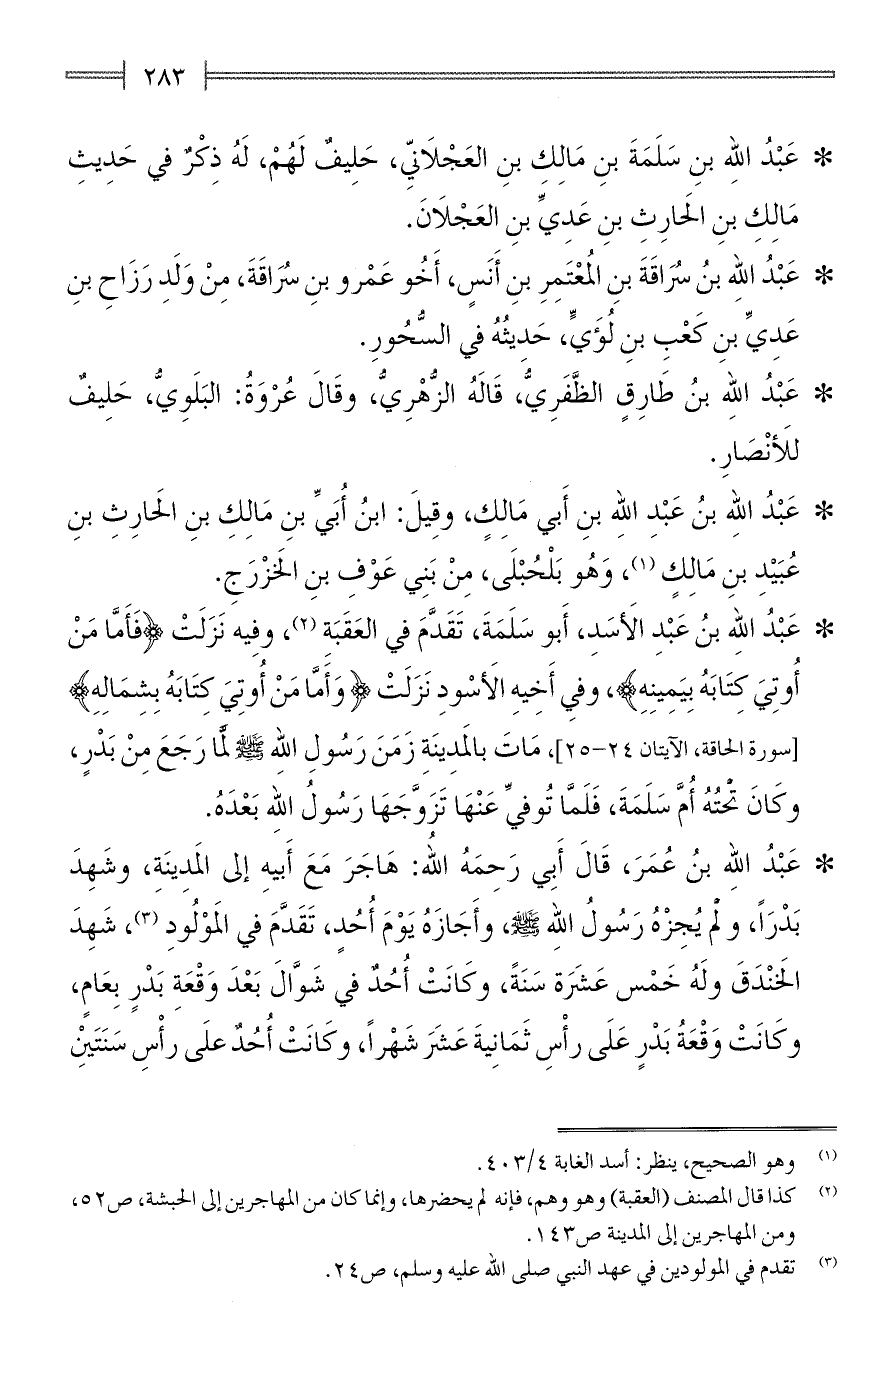 ٢٨٣
* عَبْدُ الله بنِ سَلَمَةَ بنِ مَالِكِ بنِ العَجْلَانِّي، حَلِيفٌ لَهُمْ، لَهُ ذِكْرٌ في حَدِيثِ
مَالِكِ بنِ الحَارِثِ بنِ عَدِيِّ بنِ العَجْلَانَ.
* عَبْدُ الله بنُ سُرَاقَةَ بنِ المُعْتَمِرِ بنِ أَنَسٍ، أَخُو عَمْرو بنِ سُرَاقَةَ، مِنْ وَلَدِ رَزَاحِ بنِ
عَدِيِّ بنِ كَعْبِ بنِ لُؤَيٍّ، حَدِيثُهُ في السُّحُورِ.
* عَبْدُ الله بنُ طَارِقٍ الظَّفَرِيُّ، قَالَهُ الزُّهْرِيُّ، وقَالَ عُرْوَةُ: البَلَوِيُّ، حَلِيفٌ
للأَنْصَارِ.
* عَبْدُ الله بنُ عَبْدِ الله بنِ أَبي مَالِكٍ، وقِيلَ: ابنُ أُبَيِّ بنِ مَالِكِ بنِ الحَارِثِ بنِ
عُبَيْدِ بنِ مَالِكٍ (١)، وَهُو بَلْحُبْلَى، مِنْ بَنِي عَوْفِ بنِ الخَزْرَجِ.
* عَبْدُ الله بنُ عَبْدِ الأَسَدِ، أَبو سَلَمَةَ، تَقَدَّمَ في العَقَبَةِ (٢)، وفِيهِ نَزَلَتْ ﴿فَأَمَّا مَنْ
أُوتِيَ كِتَابَهُ بِيَمِينِهِ﴾، وفي أَخِيهِ الأَسْودِ نَزَلَتْ ﴿وَأَمَّا مَنْ أُوتِيَ كِتَابَهُ بِشِمَالِهِ﴾
[سورة الحاقة، الآيتان ٢٤-٢٥]، مَاتَ بالَمدِينَةِ زَمَنَ رَسُولِ الله ﷺ لَمَّا رَجَعَ مِنْ بَدْرٍ،
وكَانَ تَحْتُهُ أُمَّ سَلَمَةَ، فَلَمَّا تُوفيِّ عَنْهَا تَزَوَّجَهَا رَسُولُ الله بَعْدَهُ.
* عَبْدُ الله بنُ عُمَرَ، قَالَ أَبي رَحِمَهُ اللهُ: هَاجَرَ مَعَ أَبيهِ إلى الَمدِينَةِ، وشَهِدَ
بَدْرَاً، ولَمْ يُجِزْهُ رَسُولُ الله ﷺ، وأَجَازَهُ يَوْمَ أُحُدٍ، تَقَدَّمَ في الَموْلُودِ (٣)، شَهِدَ
الخَنْدَقَ ولَهُ خَمْسِ عَشَرَة سَنَةً، وكَانَتْ أُحُدٌ في شَوَّالَ بَعْدَ وَقْعَةِ بَدْرٍ بِعَامٍ،
وكَانَتْ وَقْعَةُ بَدْرٍ عَلَى رأْسِ ثَمَانيةَ عَشَرَ شَهْراً، وكَانَتْ أُحُدٌ علَى رأْسِ سَنَتَيْنِ
(١) وهو الصحيح، ينظر: أسد الغابة ٤٠٣/٤.
(٢) كذا قال المصنف (العقبة) وهو وهم، فإنه لم يحضرها، وإنما كان من المهاجرين إلى الحبشة، ص٥٢،
ومن المهاجرين إلى المدينة ص١٤٣.
(٣) تقدم في المولودين في عهد النبي صلى الله عليه وسلم، ص٢٤.